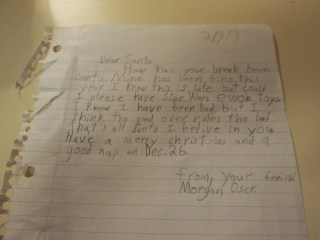 2013
Dear Santa,
How has your break been
Santa Mine has been fine this
year I know this is late but could
I please have Star Wars Ewok toys
I know I have been bad but I
think the good over rules the bad
that's all Santa I belive in you
have a merry christmas and a
good nap on Dec. 26
from, your friend
Morgan